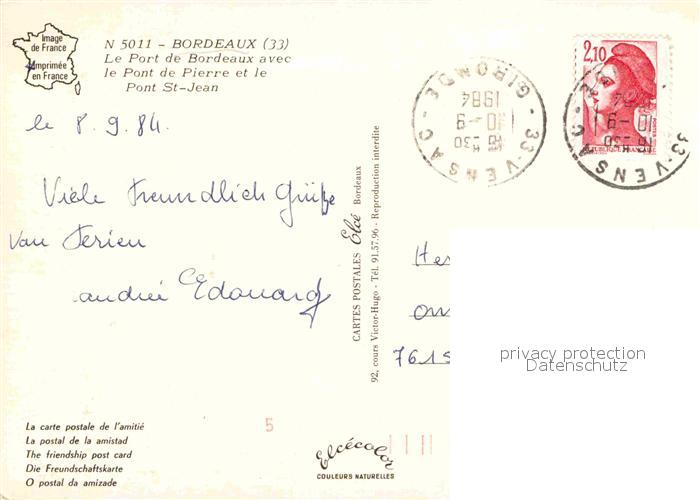 Image
de France
Imprimée
en France
N 5011 - BORDEAUX (33)
Le Port de Bordeaux avec
le Pont de Pierre et le
Pont St-Jean
le 8.9.84.
Viele Freundlich Grüße
van Ferien
andré Edouard
La carte postale de l'amitié
La postal de la amistad
The friendship post card
Die Freundschaftskarte
O postal da amizade
5
Elcécolor
COULEURS NATURELLES
CARTES POSTALES Elcé Bordeaux
92, cours Victor-Hugo - Tél. 91.57.96 - Reproduction interdite
33-VENSAC-GIRONDE
16 H30
10-9
1984
2,10
REPUBLIQUE FRANCAISE
33-VENSAC
16 H30
10-9
Her
7615
privacy protection
Datenschutz